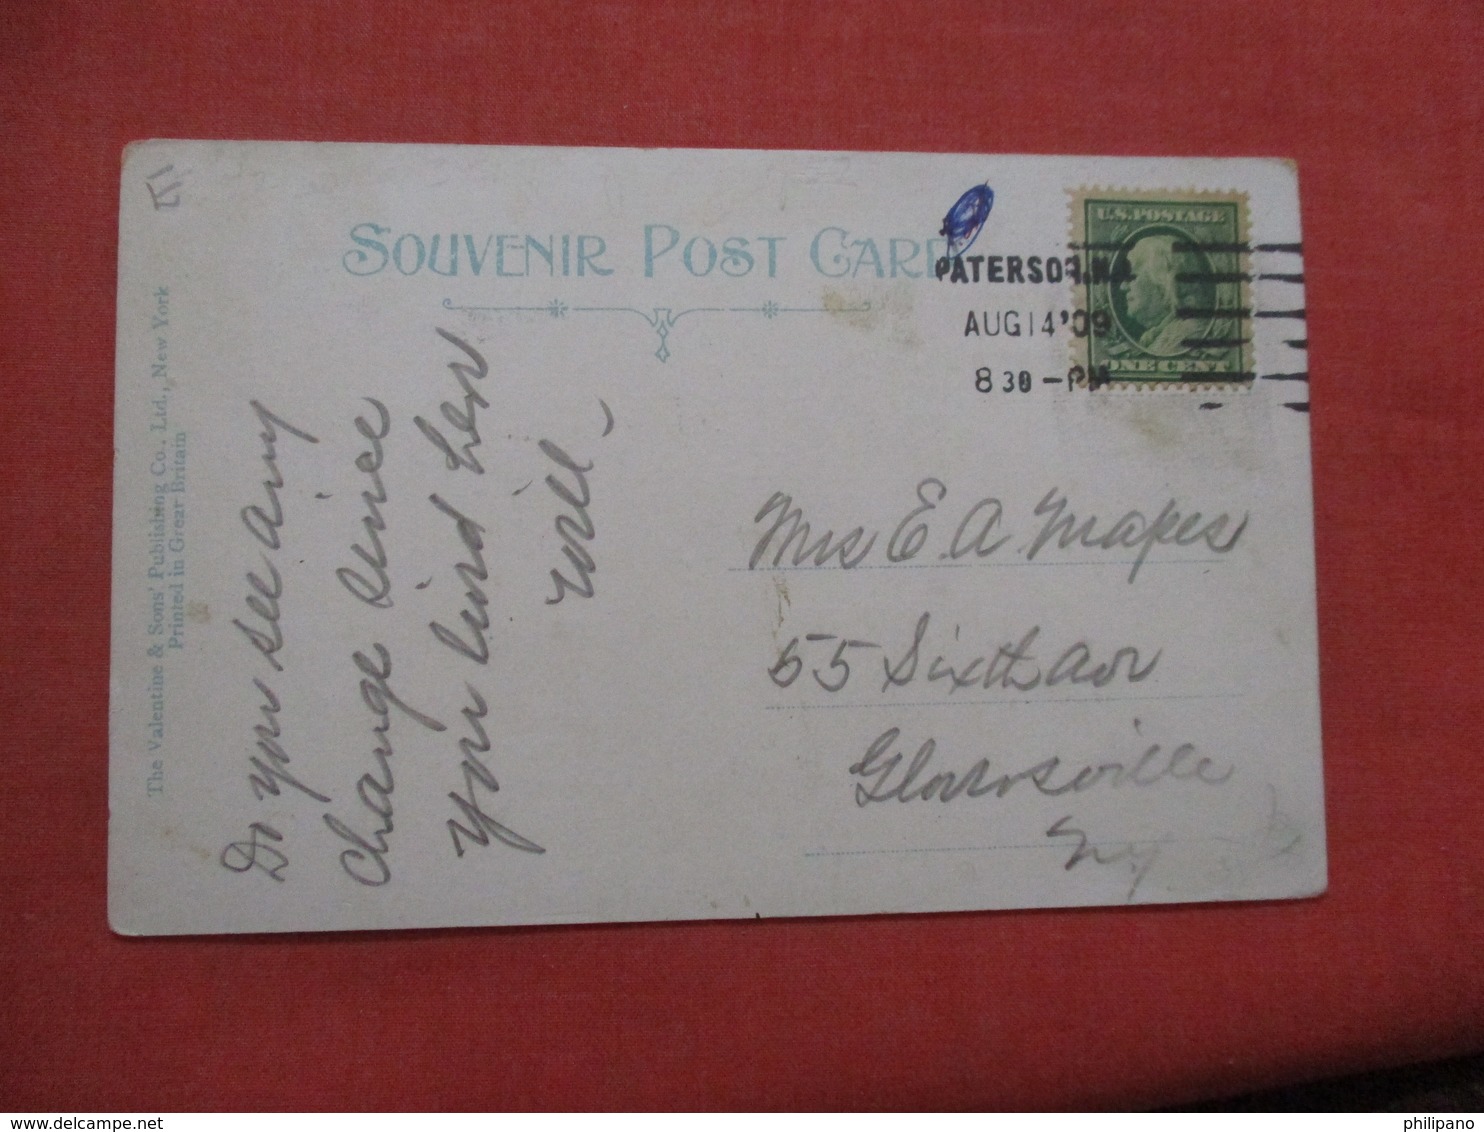 SOUVENIR POST CARD
PATERSON, N.J.
AUG 14 '09
8 30 - PM
U.S. POSTAGE
ONE CENT
The Valentine & Sons' Publishing Co., Ltd., New York
Printed in Great Britain
Do you see any
change since
you lived here
Will -
Mrs E. A. Mapes
55 Sixth Ave
Gloversville
N.Y.
philipano